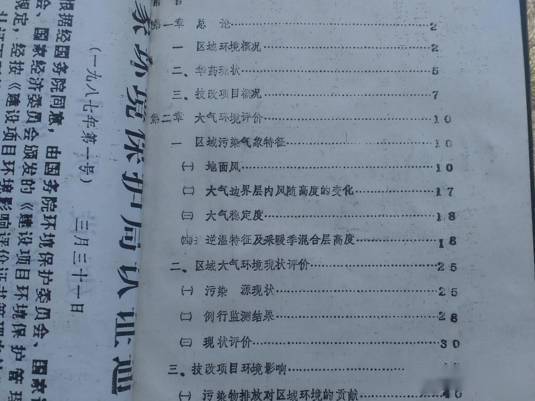 家环境保护局认证通
(一九八七年第一号)
三月三十一日
根据经国务院同意，由国务院环境保护委员会、国家
会、国家经济委员会颁发的《建设项目环境保护管
规定，经按《建设项目环境影响评价证书管理
第一章 总 论 2
一 区域环境概况 2
二、华药现状 5
三、技改项目概况 7
第二章 大气环境评价 10
一 区域污染气象特征 10
㈠ 地面风 10
㈡ 大气边界层内风随高度的变化 17
㈢ 大气稳定度 18
㈣ 逆温特征及采暖季混合层高度 18
二、区域大气环境现状评价 25
㈠ 污染 源现状 25
㈡ 例行监测结果 28
㈢ 现状评价 30
三、技改项目环境影响
㈠ 污染物排放对区域环境的贡献 40